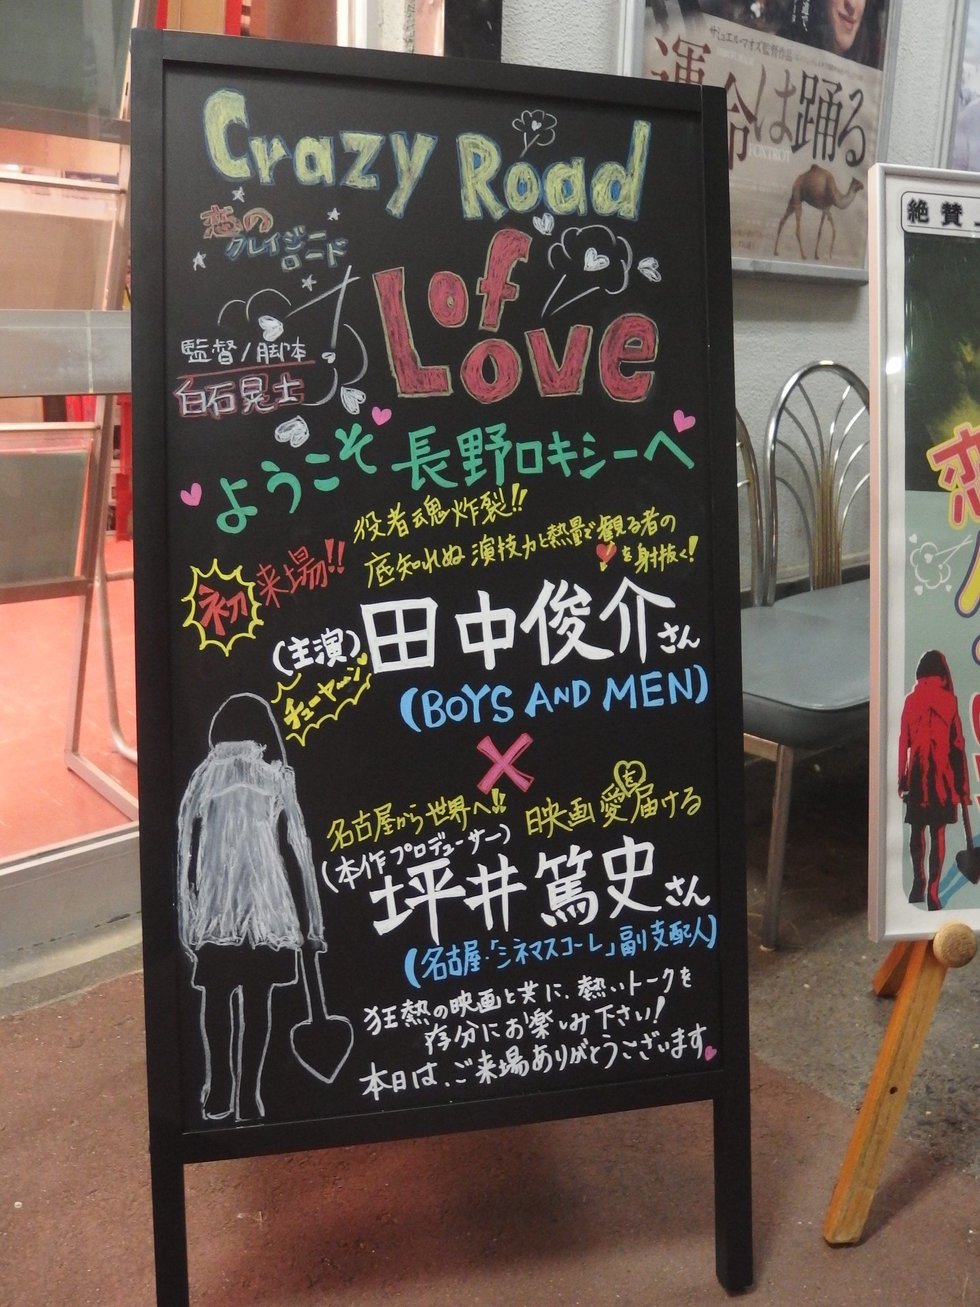 Crazy Road
of
Love
恋の
クレイジー
ロード
監督/脚本
白石晃士
ようこそ 長野ロキシーへ
役者魂炸裂!!
底知れぬ演技力と熱量で観る者の
を射抜く!
初来場!!
(主演)
田中俊介さん
チューヤーン
(BOYS AND MEN)
×
名古屋から世界へ!!
映画愛届ける
(本作プロデューサー)
坪井篤史さん
(名古屋・「シネマスコーレ」副支配人)
狂熱の映画と共に、熱いトークを
存分にお楽しみ下さい!
本日は、ご来場ありがとうございます
サミュエル・マオズ監督作品
運命は踊る
FOXTROT
絶賛
恋